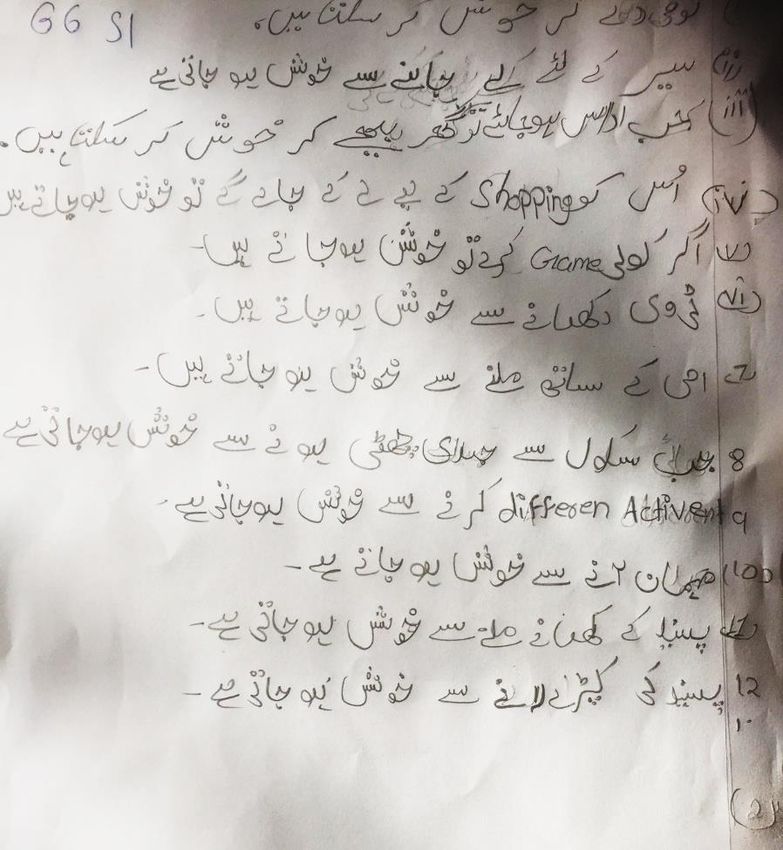 G6 S1
کر خوش کر سکتا ہیں۔
(ii) سیر کے لئے لے جانے سے خوش ہو جاتی ہے
(iii) جب اداس ہوجائے تو گھر کر خوش کر سکتا ہیں۔
(iv) اُس کو Shopping کے لے کے جاے گے تو خوش ہوجاتے ہیں
(v) اگر کوئی Game کرے تو خوش ہوجاتے ہیں۔
(vi) ٹی وی دکھانے سے خوش ہوجاتے ہیں۔
7 امی کے ساتھ ملنے سے خوش ہو جاتے ہیں۔
8 سکول سے جلدی چھٹی ہونے سے خوش ہوجاتی ہے
9 differen Activent کرنے سے خوش ہوجاتی ہے۔
(10) مہمان آنے سے خوش ہو جاتے ہے۔
11 پسند کے کھانے ملے سے خوش ہو جاتی ہے۔
12 پسند کی کپڑے لانے سے خوش ہو جاتی ہے۔
(2)